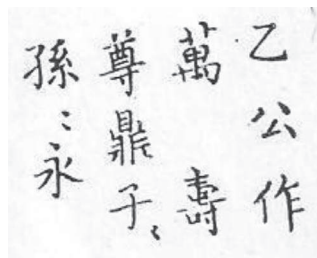 乙公作
萬壽
尊鼎子〻
孫〻永